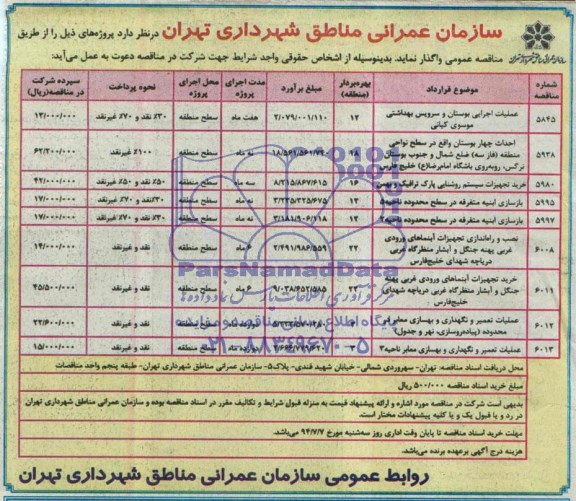 سازمان عمرانی مناطق شهرداری تهران درنظر دارد پروژه‌های ذیل را از طریق
مناقصه عمومی واگذار نماید. بدینوسیله از اشخاص حقوقی واجد شرایط جهت شرکت در مناقصه دعوت به عمل می‌آید:
شماره مناقصه موضوع قرارداد بهره‌بردار (منطقه) مبلغ برآورد مدت اجرای پروژه محل اجرای پروژه نحوه پرداخت سپرده شرکت در مناقصه(ریال)
۵۸۴۵ عملیات اجرایی بوستان و سرویس بهداشتی موسوی کیانی ۱۲ ۲/۰۷۹/۰۰۱/۱۱۰ هفت ماه سطح منطقه ۳۰٪ نقد و ۷۰٪ غیرنقد ۱۳/۰۰۰/۰۰۰
۵۹۳۸ احداث چهار بوستان واقع در سطح نواحی
منطقه (فاز سه) ضلع شمال و جنوب بوستان
نرگس، روبه‌روی باشگاه امام‌رضا(ع) خلیج فارس ۱۸ نه ماه سطح منطقه ۱۰۰٪ غیرنقد ۶۲/۲۰۰/۰۰۰
۵۹۸۰ خرید تجهیزات سیستم روشنایی پارک ترافیک و بهمن ۱۶ ۸/۳۱۵/۸۶۷/۶۱۵ سه ماه سطح منطقه ۵۰٪ نقد و ۵۰٪ غیرنقد ۴۲/۰۰۰/۰۰۰
۵۹۹۵ بازسازی ابنیه متفرقه در سطح محدوده ناحیه۵ ۱۲ ۳/۲۳۵/۲۲۵/۶۷۵ نه ماه سطح منطقه ۳۰٪نقد و ۷۰٪ غیرنقد ۱۷/۰۰۰/۰۰۰
۵۹۹۷ بازسازی ابنیه متفرقه در سطح محدوده ناحیه۲ ۱۲ ۳/۱۸۱/۹۰۶/۱۱۸ نه ماه سطح منطقه ۳۰٪نقد و ۷۰٪ غیرنقد ۱۷/۰۰۰/۰۰۰
۶۰۰۸ نصب و راه‌اندازی تجهیزات آبنماهای ورودی
غربی پهنه جنگل و آبشار منظرگاه غربی
دریاچه شهدای خلیج‌فارس ۲۲ ۲/۴۹۱/۹۸۶/۵۵۹ ماه سطح منطقه نقد و غیرنقد ۱۳/۰۰۰/۰۰۰
۶۰۱۱ خرید تجهیزات آبنماهای ورودی غربی پهنه
جنگل و آبشار منظرگاه غربی دریاچه شهدای
خلیج‌فارس ۲۲ ۹/۰۳۸/۴۵۲/۵۸۵ ماه سطح منطقه نقد و غیرنقد ۴۵/۵۰۰/۰۰۰
۶۰۱۲ عملیات تعمیر و نگهداری و بهسازی معابر
محدوده (پیاده‌روسازی، نهر و جدول) سطح منطقه نقد و غیرنقد ۲۲/۶۰۰/۰۰۰
۶۰۱۳ عملیات تعمیر و نگهداری و بهسازی معابر ناحیه۳ سطح منطقه نقد و غیرنقد ۱۵/۰۰۰/۰۰۰
محل دریافت اسناد مناقصه: تهران- سهروردی شمالی- خیابان شهید قندی- پلاک۵- سازمان عمرانی مناطق شهرداری تهران- طبقه پنجم واحد مناقصات
مبلغ خرید اسناد مناقصه ۵۰۰/۰۰۰ ریال
بدیهی است شرکت در مناقصه مورد اشاره و ارائه پیشنهاد قیمت به منزله قبول شرایط و تکالیف مقرر در اسناد مناقصه بوده و سازمان عمرانی مناطق شهرداری تهران
در رد و یا قبول یک و یا کلیه پیشنهادات مختار است.
مهلت خرید اسناد مناقصه تا پایان وقت اداری روز سه‌شنبه مورخ ۹۴/۷/۷ می‌باشد.
هزینه درج آگهی برعهده برنده می‌باشد.
روابط عمومی سازمان عمرانی مناطق شهرداری تهران
ParsNamadData
پایگاه اطلاع رسانی مناقصه و مزایده
۰۲۱-۸۸۳۴۹۶۷۰-۵